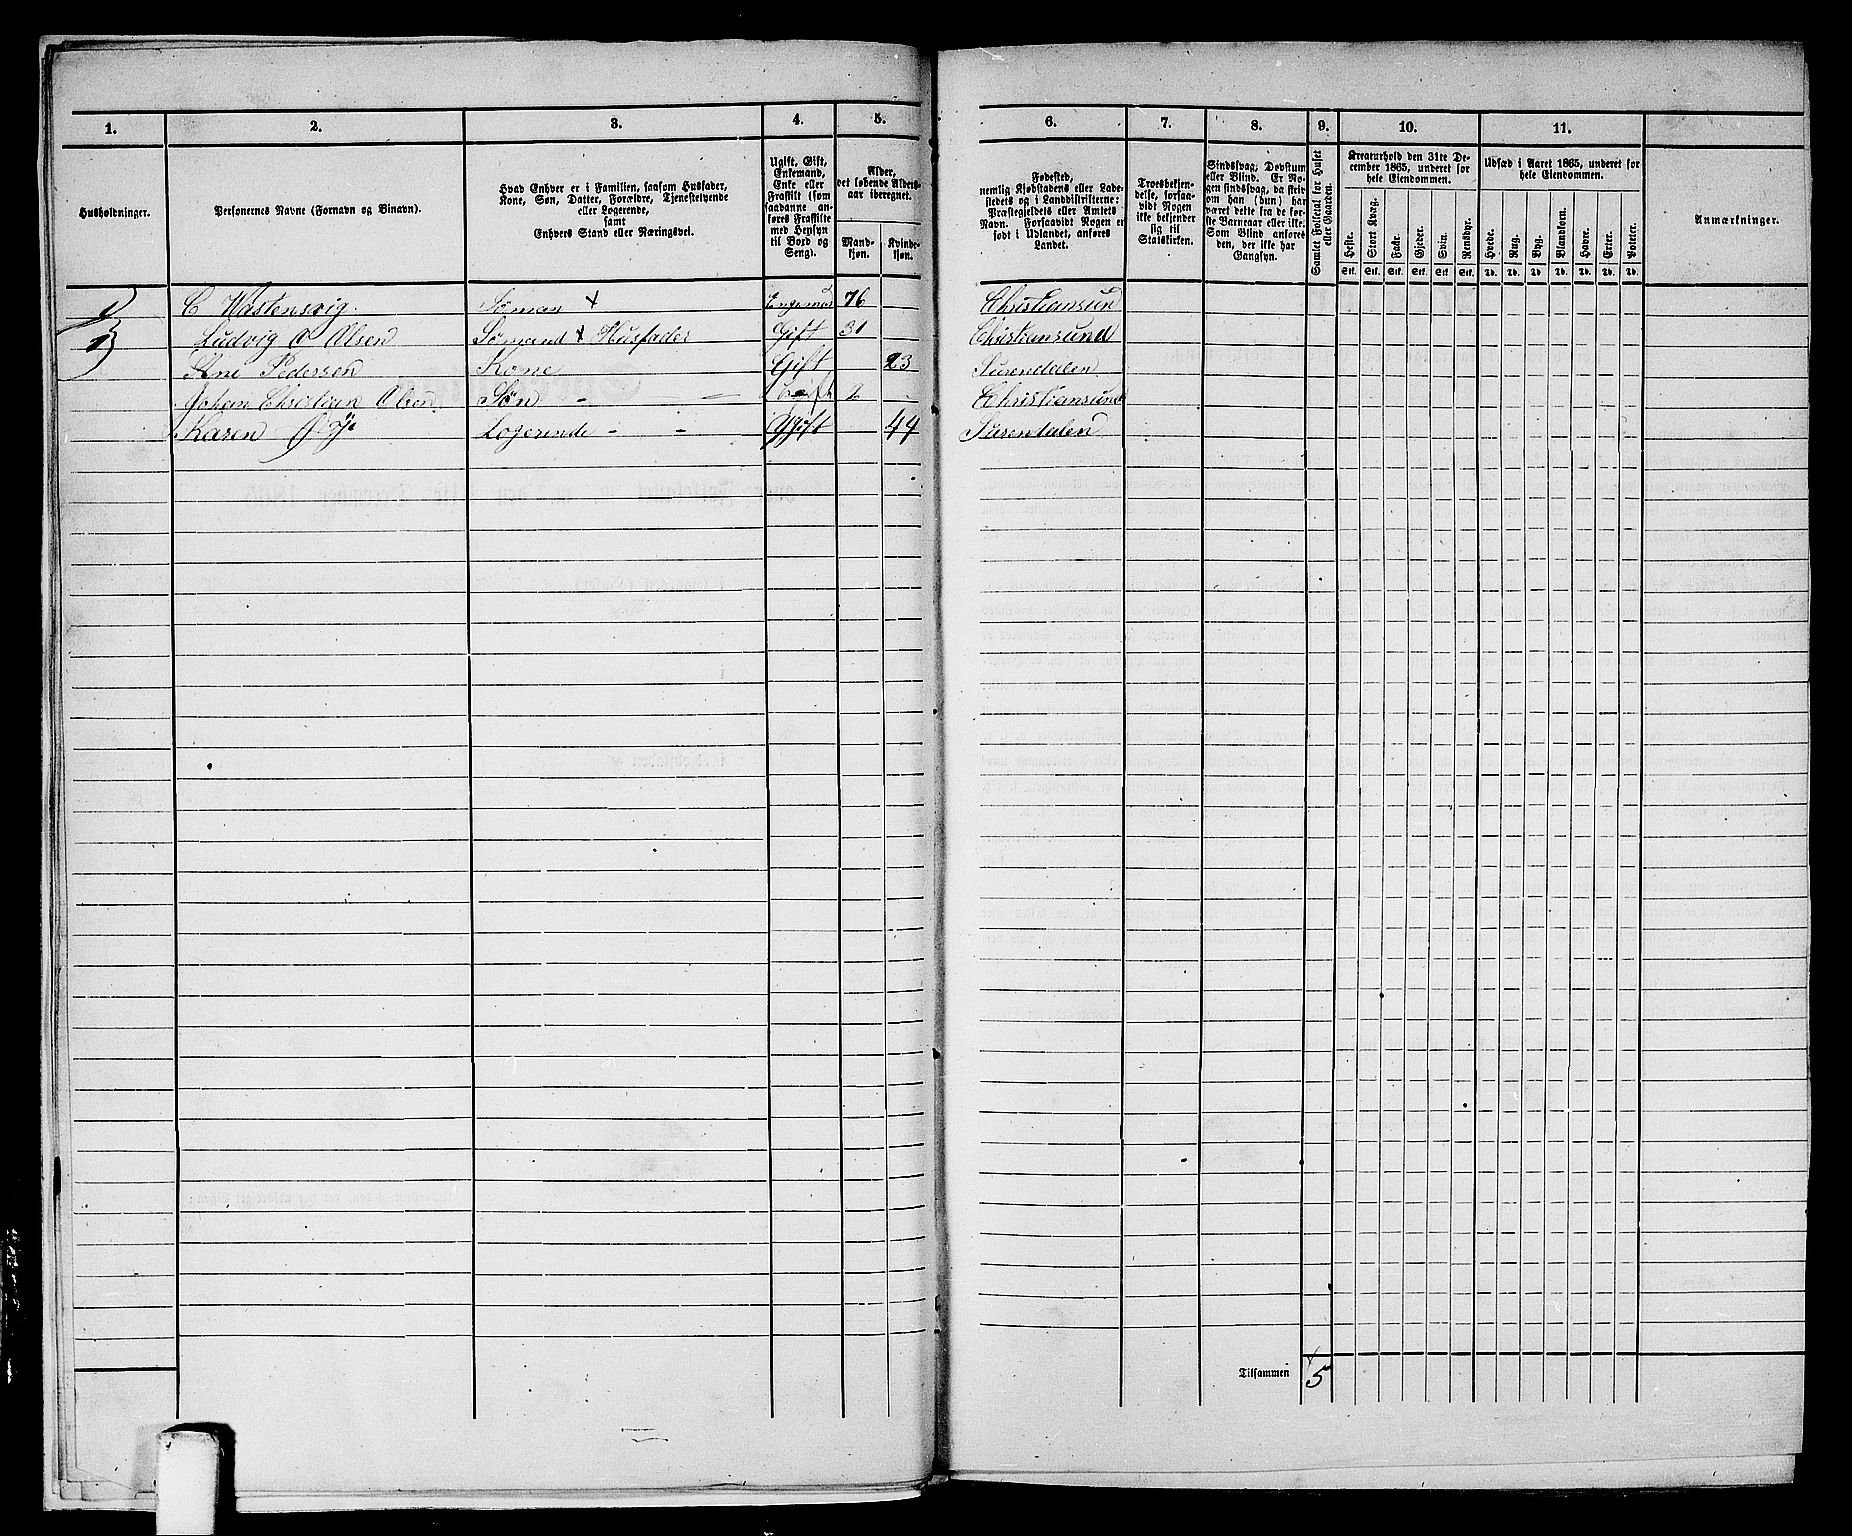 1. 2. 3. 4. 5. 6. 7. 8. 9. 10. 11.
Husholdninger.
Personernes Navne (Fornavn og Binavn).
Hvad Enhver er i Familien, saasom Husfader,
Kone, Søn, Datter, Forældre, Tjenestetyende
eller Logerende,
samt
Enhvers Stand eller Næringsvei.
Ugift, Gift,
Enkemand,
Enke eller
Fraskilt (som
saadanne an-
føres Fraskilte
med Hensyn
til Bord og
Seng).
Alder,
det løbende Alders-
aar iberegnet.
Mand-
kjøn.
Kvinde-
kjøn.
Fødested,
nemlig Kjøbstadens eller Lade-
stedets og i Landdistrikterne:
Præstegjeldets eller Amtets
Navn. Forsaavidt Nogen er
født i Udlandet, anføres
Landet.
Troesbekjen-
delse, forsaa-
vidt Nogen
ikke bekjender
sig til
Statskirken.
Sindssvag, Døvstum
eller Blind. Er No-
gen sindssvag, da skriv
om han (hun) har
været dette fra de før-
ste Barneaar eller ikke.
Som Blind anføres
den, der ikke har
Gangsyn.
Samlet Folketal for Huset
eller Gaarden.
Kreaturhold den 31te De-
cember 1865, underet for
hele Eiendommen.
Heste. Stort Kvæg. Faar. Gjeder. Svin. Rensdyr.
Stk. Stk. Stk. Stk. Stk. Stk.
Udsæd i Aaret 1865, underet for
hele Eiendommen.
Hvede. Rug. Byg. Blandkorn. Havre. Erter. Poteter.
Td. Td. Td. Td. Td. Td. Td.
Anmærkninger.
C Wastensvig. Søman + 76 Christiansund
Ludvig O Olsen Sømand + Husfader Gift 31 Christiansund
Ane Pedersen Kone Gift 23 Surendalen
Johan Christian Olsen Søn - - 2 Christiansund
Karen Logerende - - Gift 44 Surendalen
Tilsammen 5